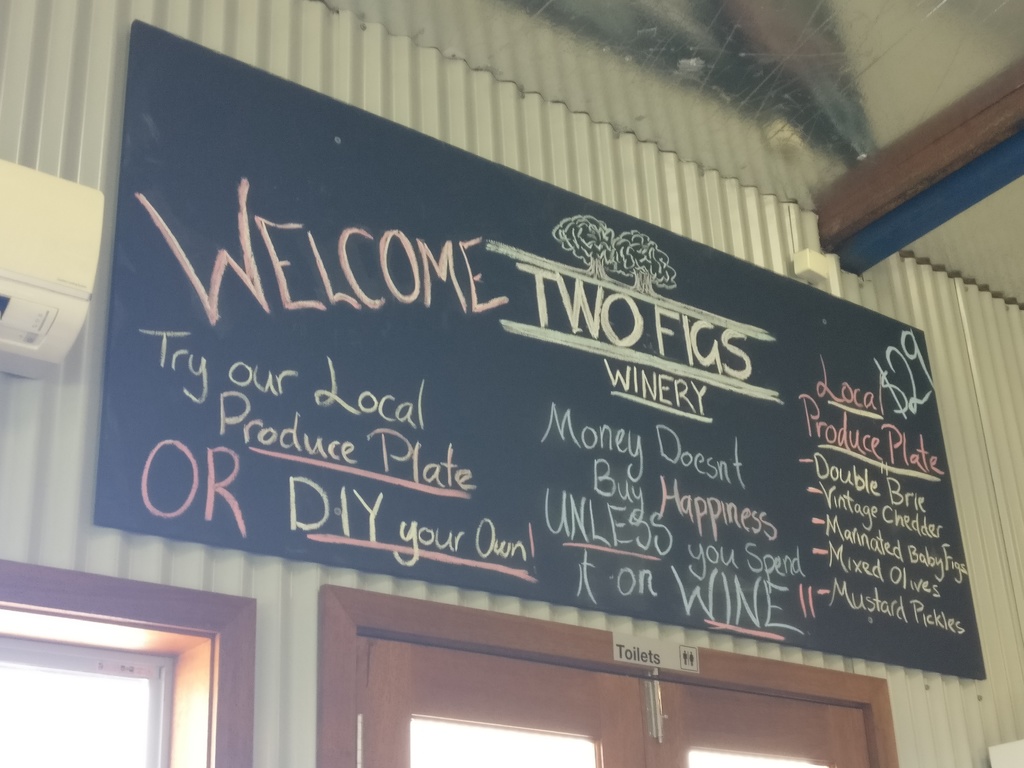 WELCOME
TWO FIGS
WINERY
Try our Local
Produce Plate
OR DIY your Own!
Money Doesnt
Buy Happiness
UNLESS you Spend
it on WINE !!
$29
Local
Produce Plate
- Double Brie
- Vintage Chedder
- Marinated Baby Figs
- Mixed Olives
- Mustard Pickles
Toilets